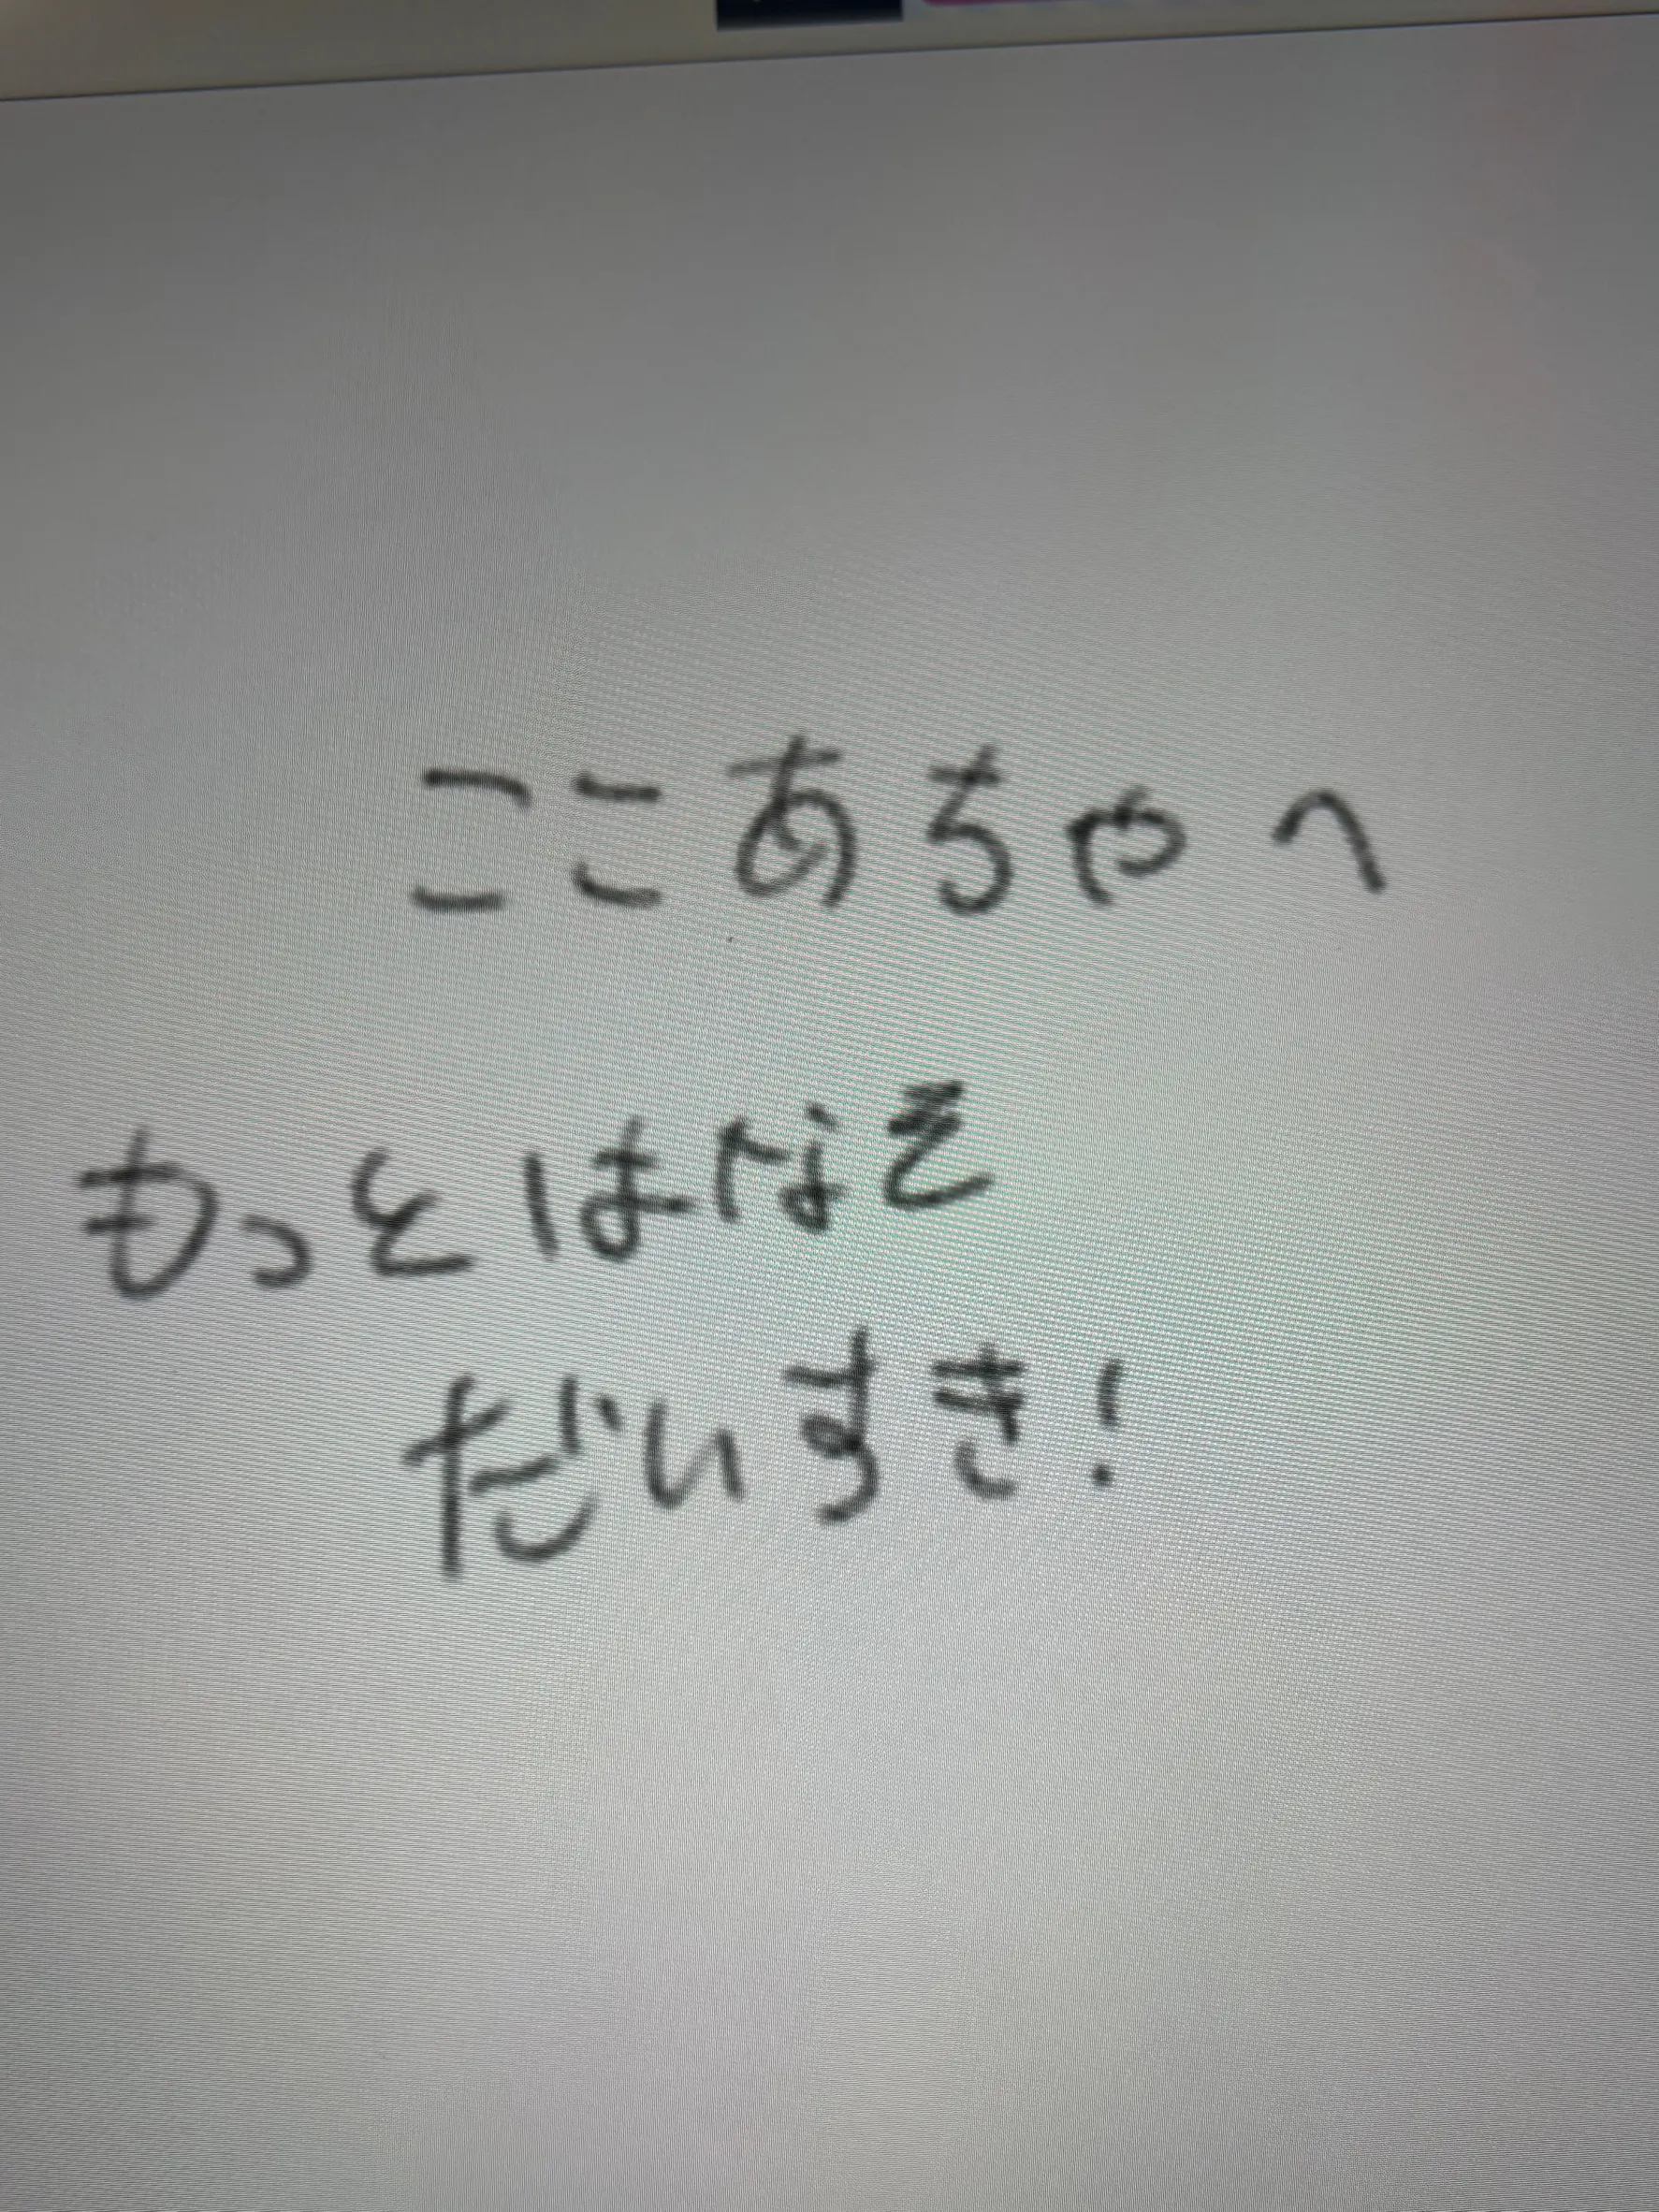 ここあちゃへ
もっとはなそ
だいすき!